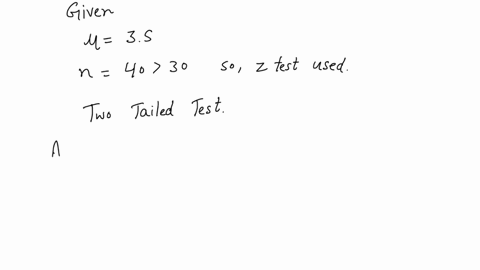 Given
μ = 3.5
n = 40 > 30 so, z test used.
Two Tailed Test.